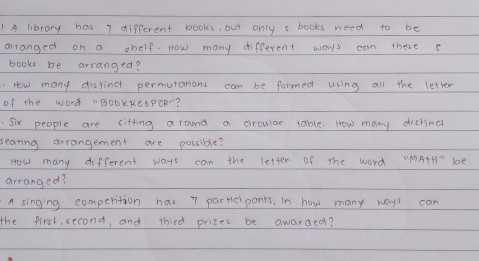 1 A library has 7 different books, but only s books need to be
arranged on a shelf. How many different ways can these s
books be arranged?
. How many distinct permutations can be formed using all the letter
of the word "BOOKKEEPER"?
. Six people are sitting around a circular table. How many distinct
seating arrangement are possible?
How many different ways can the letter of the word "MATH" be
arranged?
. A singing competition has 7 participants, In how many ways can
the first, second, and third prizes be awarded?